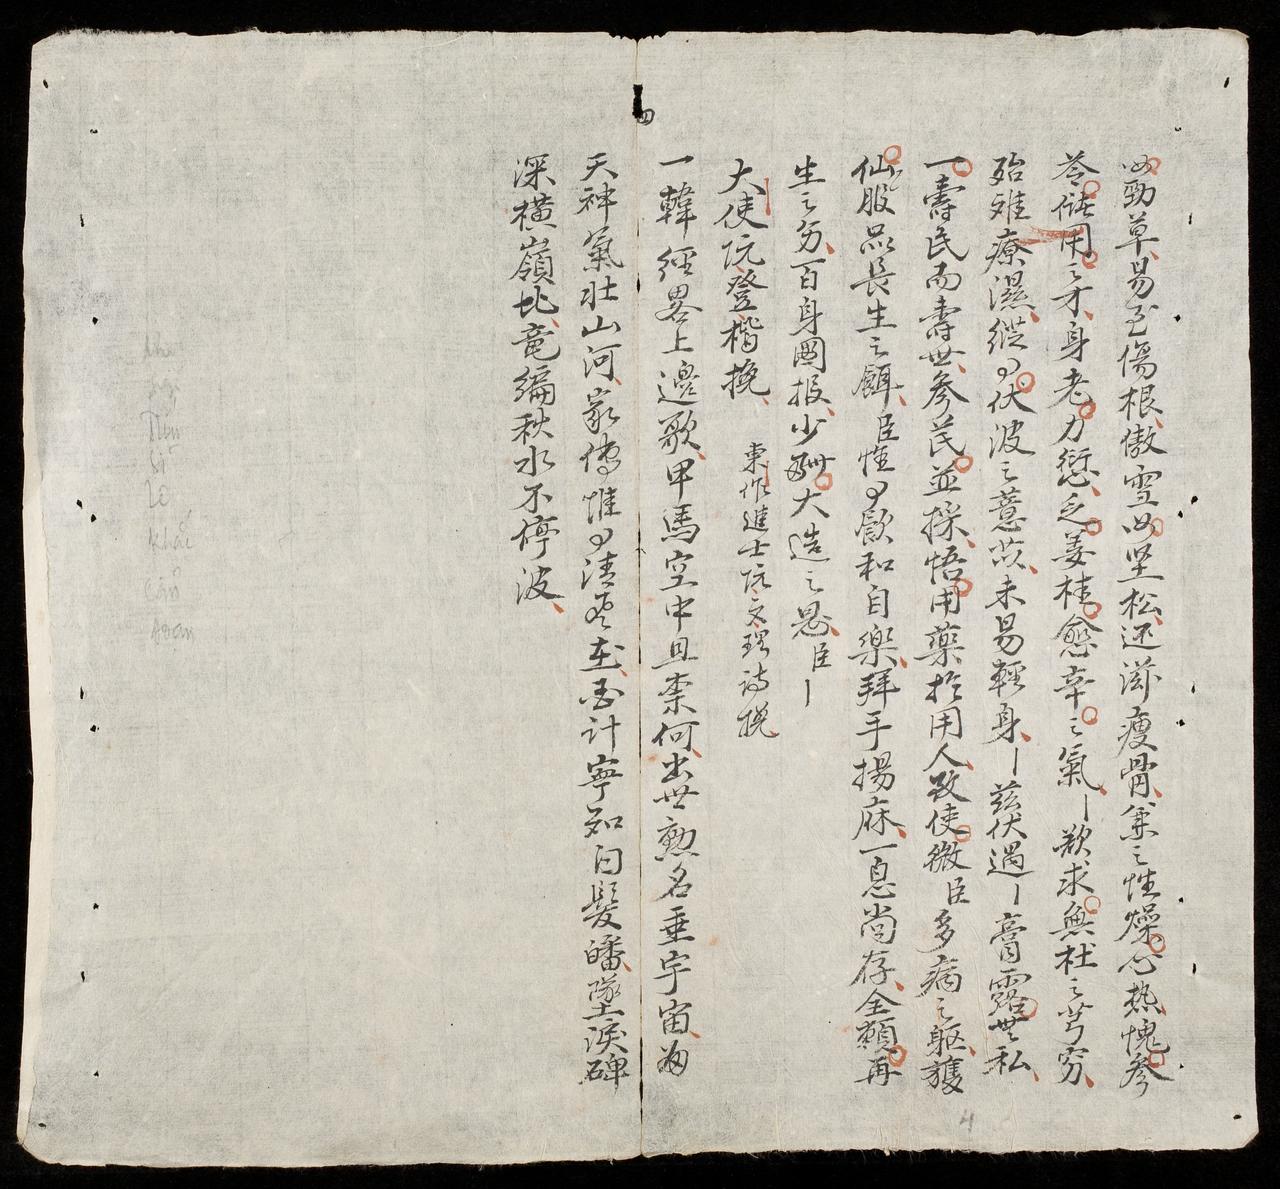 四
如勁草易至傷根傲雪如坚松还滋瘦骨兼之性燥心热愧參
苓储用之才身老力愆乏姜桂愈辛之氣〡欲求無杜之芎窮
殆难療濕縱有伏波之薏苡未易輕身〡兹伏遇〡膏露無私
一壽民而壽世參芪並採悟用藥於用人致使微臣多病之軀獲
仙股品長生之餌臣惟有歌和自樂拜手揚庥一息尚存全賴再
生之力百身圖报少酬大造之恩臣〡
大使阮登楷挽
東作進士阮文理詩挽
一韓經畧上邊歌甲馬空中且柰何出世勲名垂宇宙为
天神氣壮山河家傳惟有清在国計寧知白髮皤墜淚碑
深横嶺北竜編秋水不停波
4
20
khắc
cần